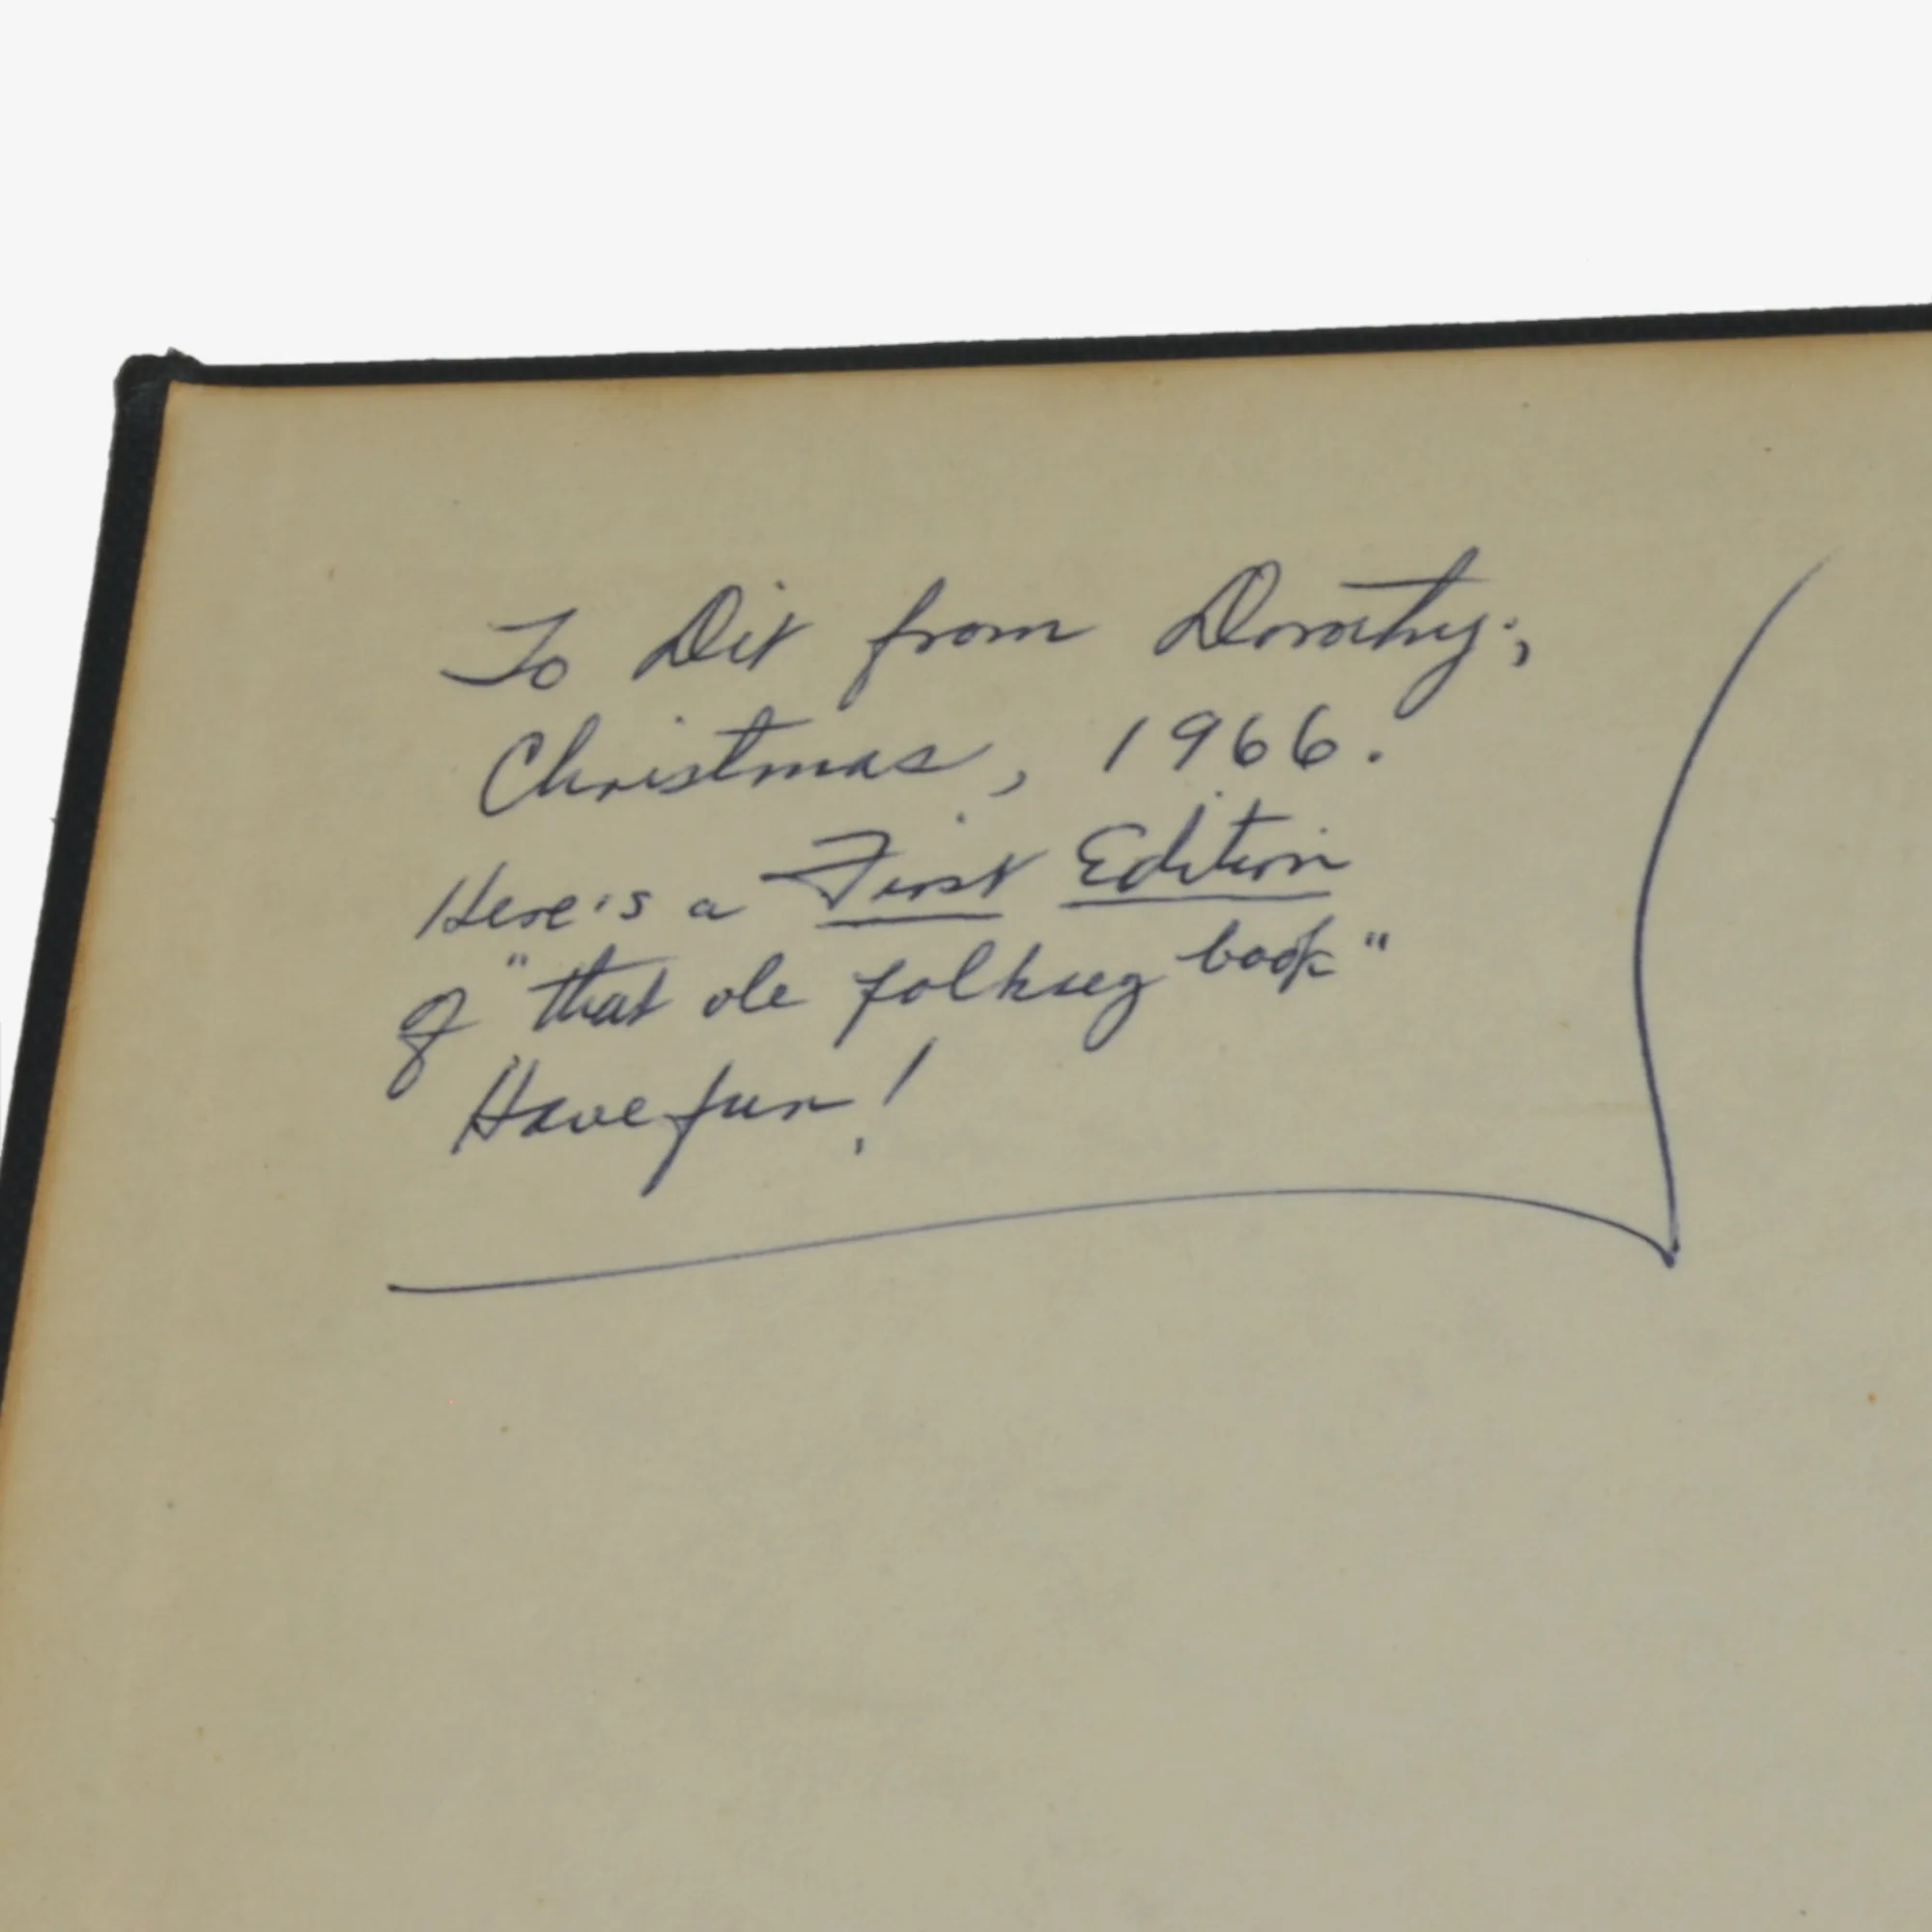 To Dit from Dorothy;
Christmas, 1966.
Here's a First Edition
of "that ole folkseg book"
Have fun!